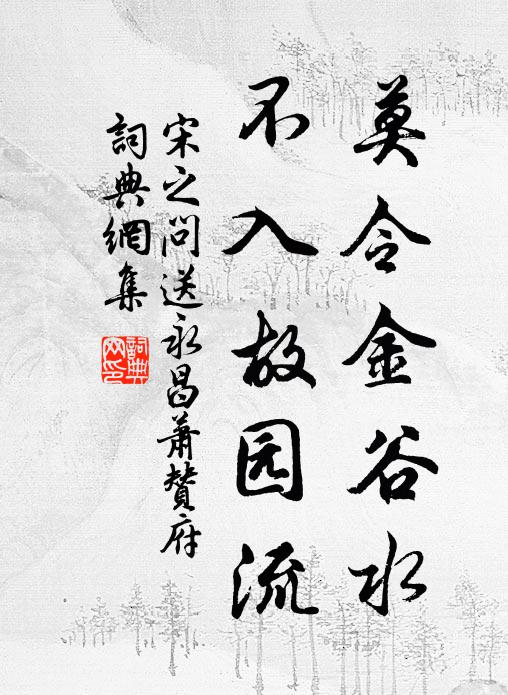 莫令金谷水
不入故园流
宋之问送永昌萧赞府
詞典網集
詞典
网印